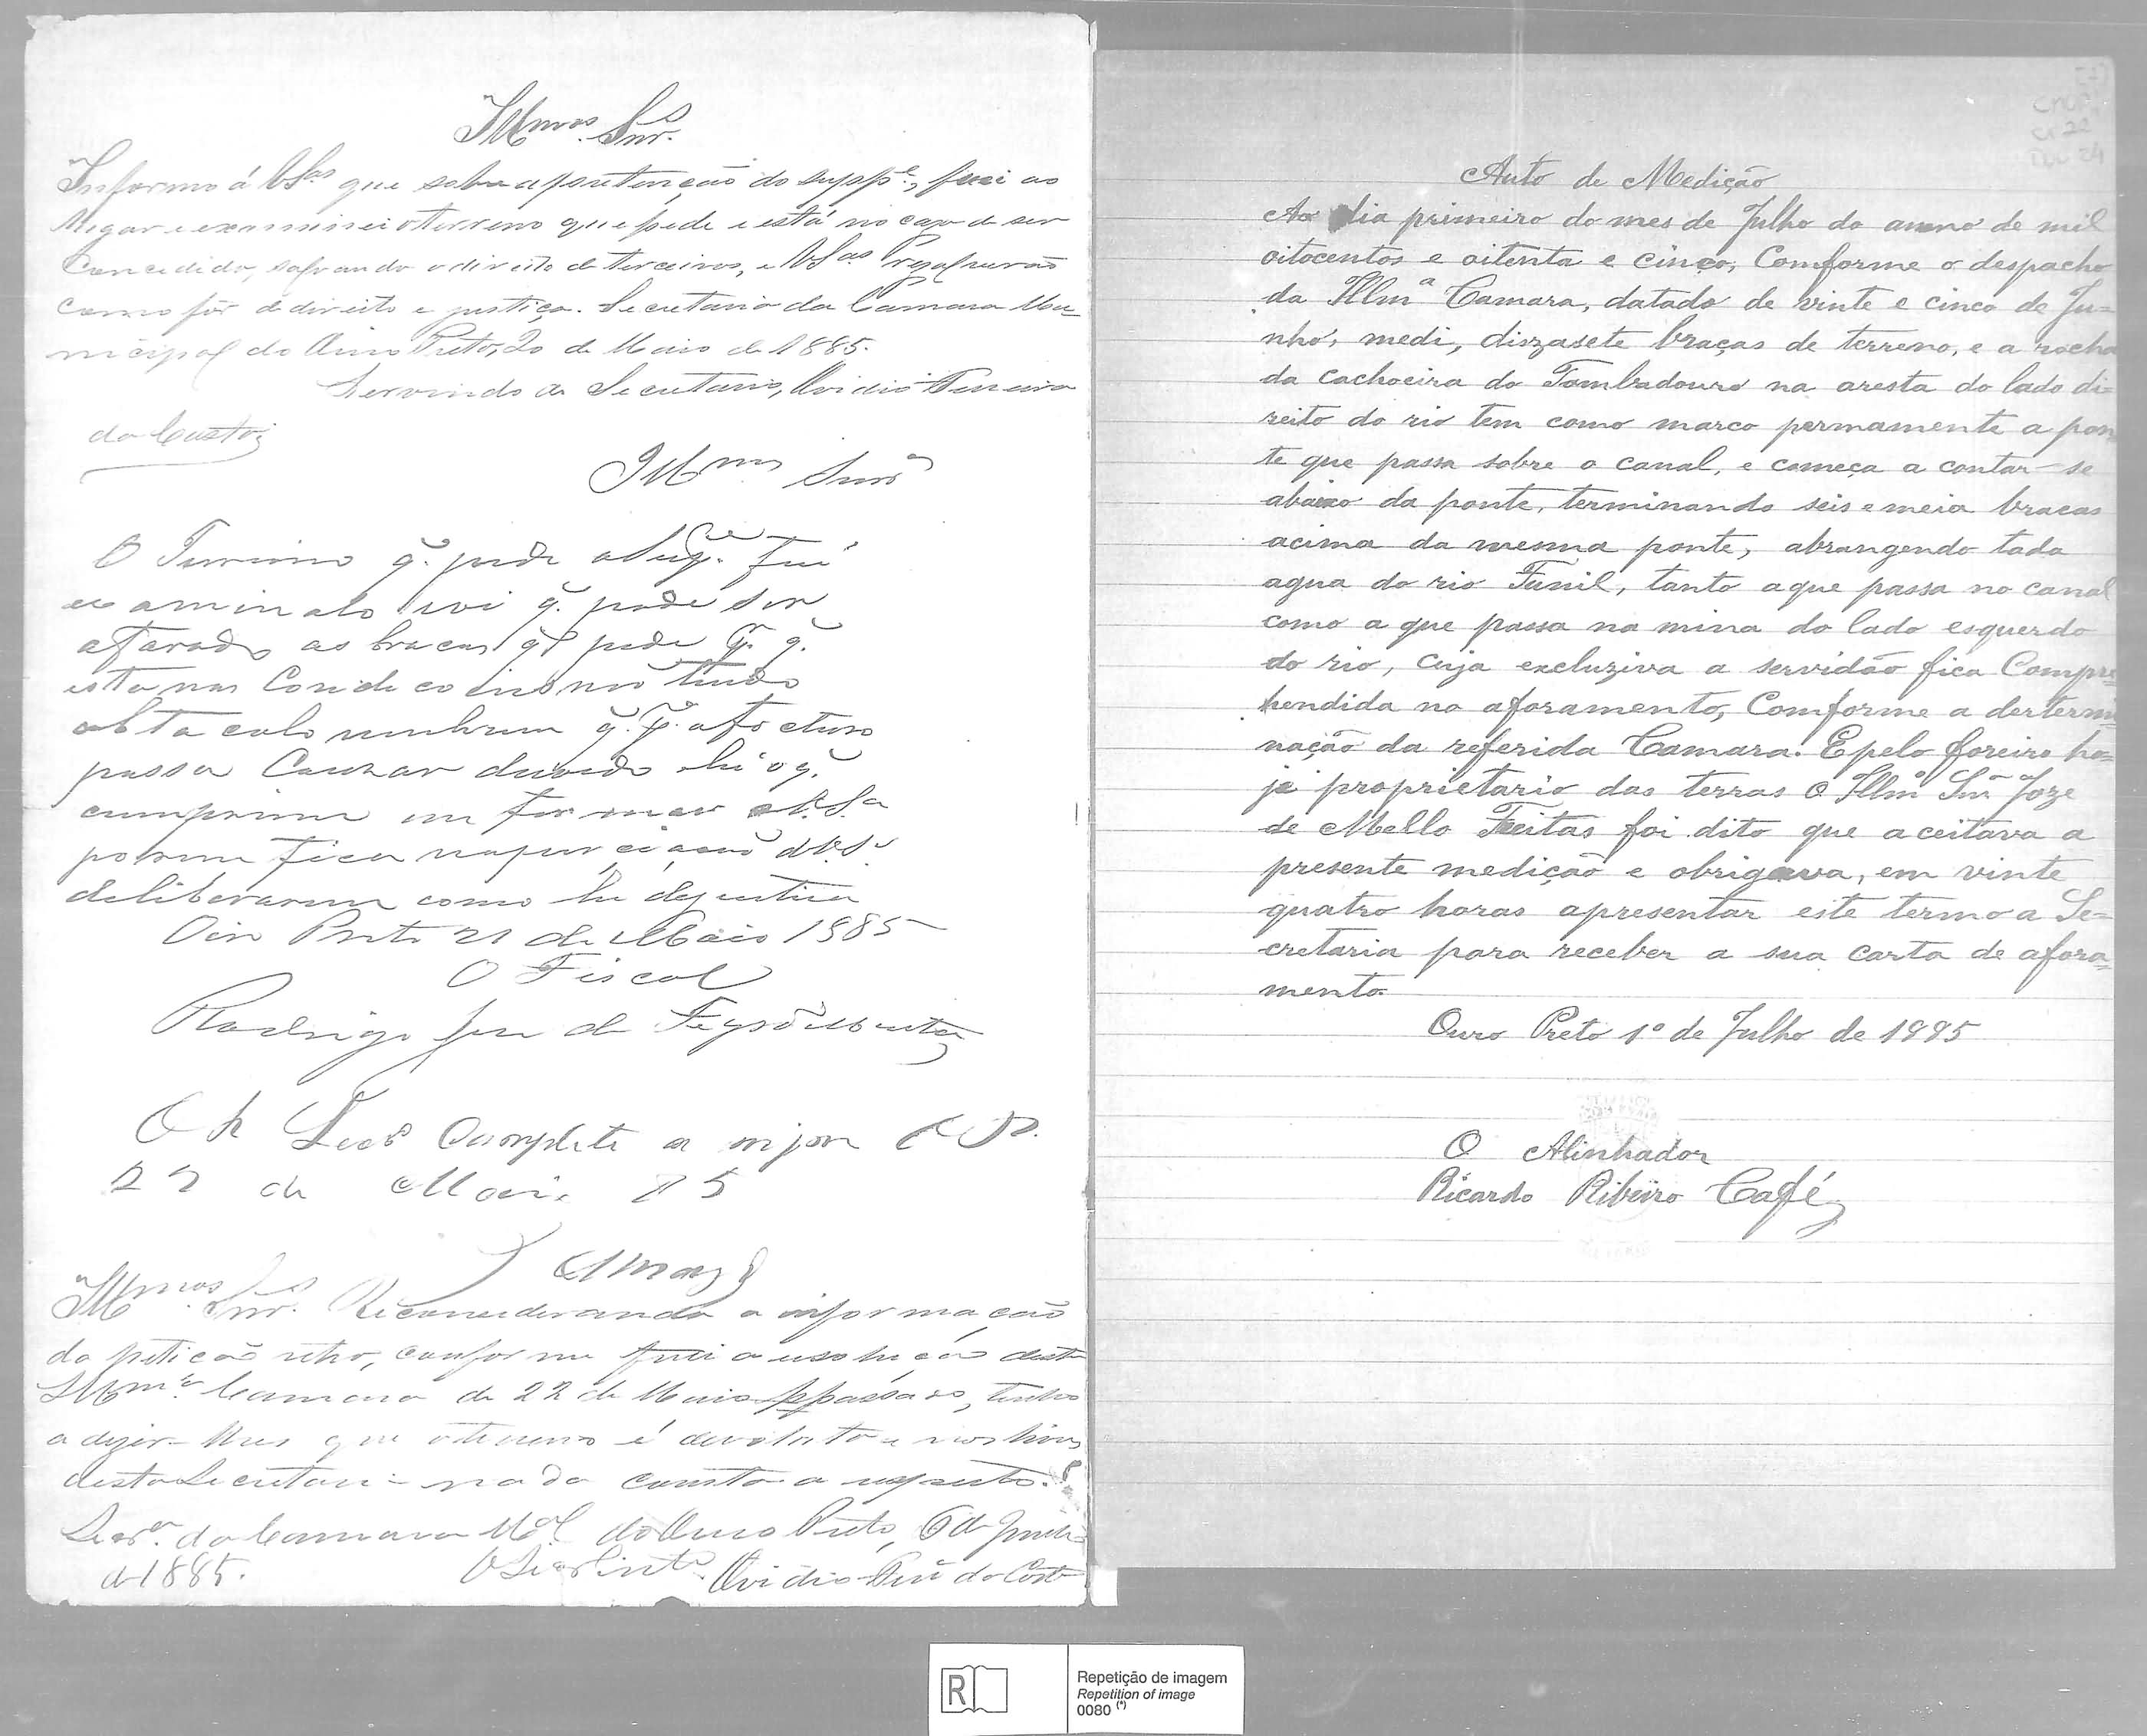 Illmos. Snrs.
Informo á VSas que sobre a pretenção do suppe., fui ao
lugar e examinei o terreno que pede e está no caso de ser
Concedido, salvando o direito de terceiros, e VSas
como fôr de direito e justiça. Secretaria da Camara Mu=
nicipal do Ouro Preto, 20 de Maio de 1885.
Servindo de Secretario, Ovidio Ferreira
da Costa
Illmos Snrs
O Terreno q. pede o Supe. fui
examinalo e vi q. pode ser
aforado as bracas q. pede q.
esta nas Condicoens não tendo
obstaculo nenhum q.
possa Cauzar duvida he o q.
cumprime informar a V.S.a
porem fica
deliberarem como he de justica
Oiro Preto 21 de Maio 1885
O Fiscal
Rodrigo
Complete a
22 de Maio 85
Illmos. Snrs. Reconsiderando a informação
da petição retro, conforme foi a resolução desta
Illma. Camara de 22 de Maio ppassado, tenho
a dizer-lhes que o terreno é devoluto e nos livros
desta Secretaria nada consta a respeito.
Secra. da Camara Mal. do Ouro Preto, 6 de Junho
de 1885.
Ovidio Ferra da Costa
Auto de Medição
Ao dia primeiro do mes de Julho do anno de mil
oitocentos e oitenta e cinco, Comforme o despacho
da Illma Camara, datado de vinte e cinco de Ju=
nho, medi, diszasete braças de terreno, e a rocha
da cachoeira do Tombadouro na aresta do lado di=
reito do rio tem como marco permamente a pon
te que passa sobre o canal, e começa a contar-se
abaixo da ponte, terminando seis e meia bracas
acima da mesma ponte, abrangendo toda
agua do rio Funil, tanto a que passa no canal
como a que passa na mina do lado esquerdo
do rio, cuja excluziva a servidão fica Compre=
hendida no aforamento, Comforme a dertermi=
nação da referida Camara. E pelo foreiro ho=
je proprietario das terras o Illmo Snr Joze
de Mello Freitas foi dito que aceitava a
presente medição e obrigava, em vinte
quatro horas apresentar este termo a Se=
cretaria para receber a sua carta de afora=
mento.
Ouro Preto 1º de Julho de 1885
O Alinhador
Ricardo Ribeiro Café
R
Repetição de imagem
Repetition of image
0080 (*)